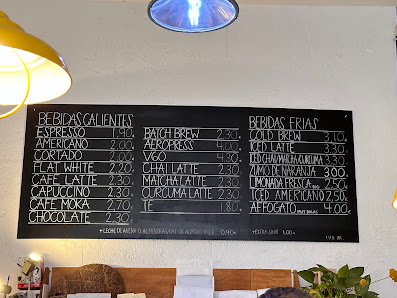 BEBIDAS CALIENTES
ESPRESSO 1.90
AMERICANO 2.00
CORTADO 2.00
FLAT WHITE 2.20
CAFE LATTE 2.30
CAPUCCINO 2.30
CAFE MOKA 2.70
CHOCOLATE 2.30
BATCH BREW 2.30
AEROPRESS 4.00
V60 4.30
CHAI LATTE 2.30
MATCHA LATTE 2.30
CURCUMA LATTE 2.30
TÉ 1.80
BEBIDAS FRIAS
COLD BREW 3.10
ICED LATTE 3.30
ICED CHAI/MATCHA/CURCUMA 3.30
ZUMO DE NARANJA 3.00
LIMONADA FRESCA 2.50
ICED AMERICANO 2.50
AFFOGATO 4.00
+LECHE DE AVENA O ALMENDRAS 0.40
+EXTRA SHOT